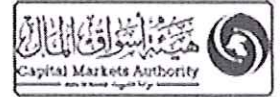 هيئة أسواق المال
Capital Markets Authority